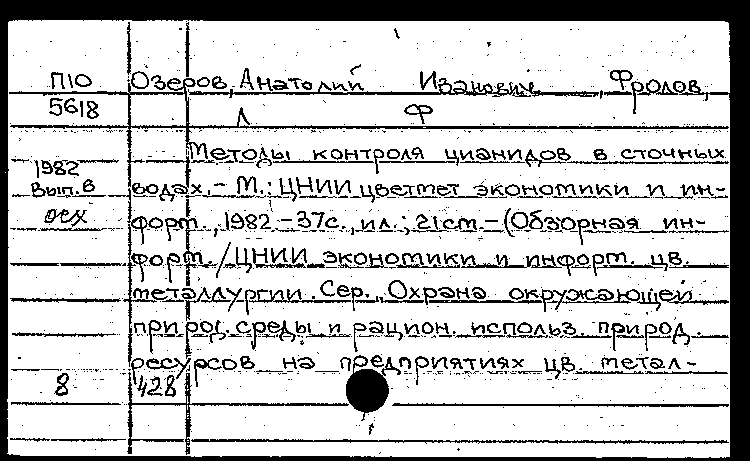 П10 Озеров, Анатолий Иванович, Фролов,
5618 Л Ф
Методы контроля цианидов в сточных
1982
Вып. 6 водах. – М.: ЦНИИцветмет экономики и ин-
форт., 1982. – 37с., ил.; 21ст. – (Обзорная ин-
форт. / ЦНИИ экономики и информ. цв.
металлургии. Сер. „Охрана окружающей
природ. среды и рацион. использ. природ.
ресурсов на предприятиях цв. метал-
8 428